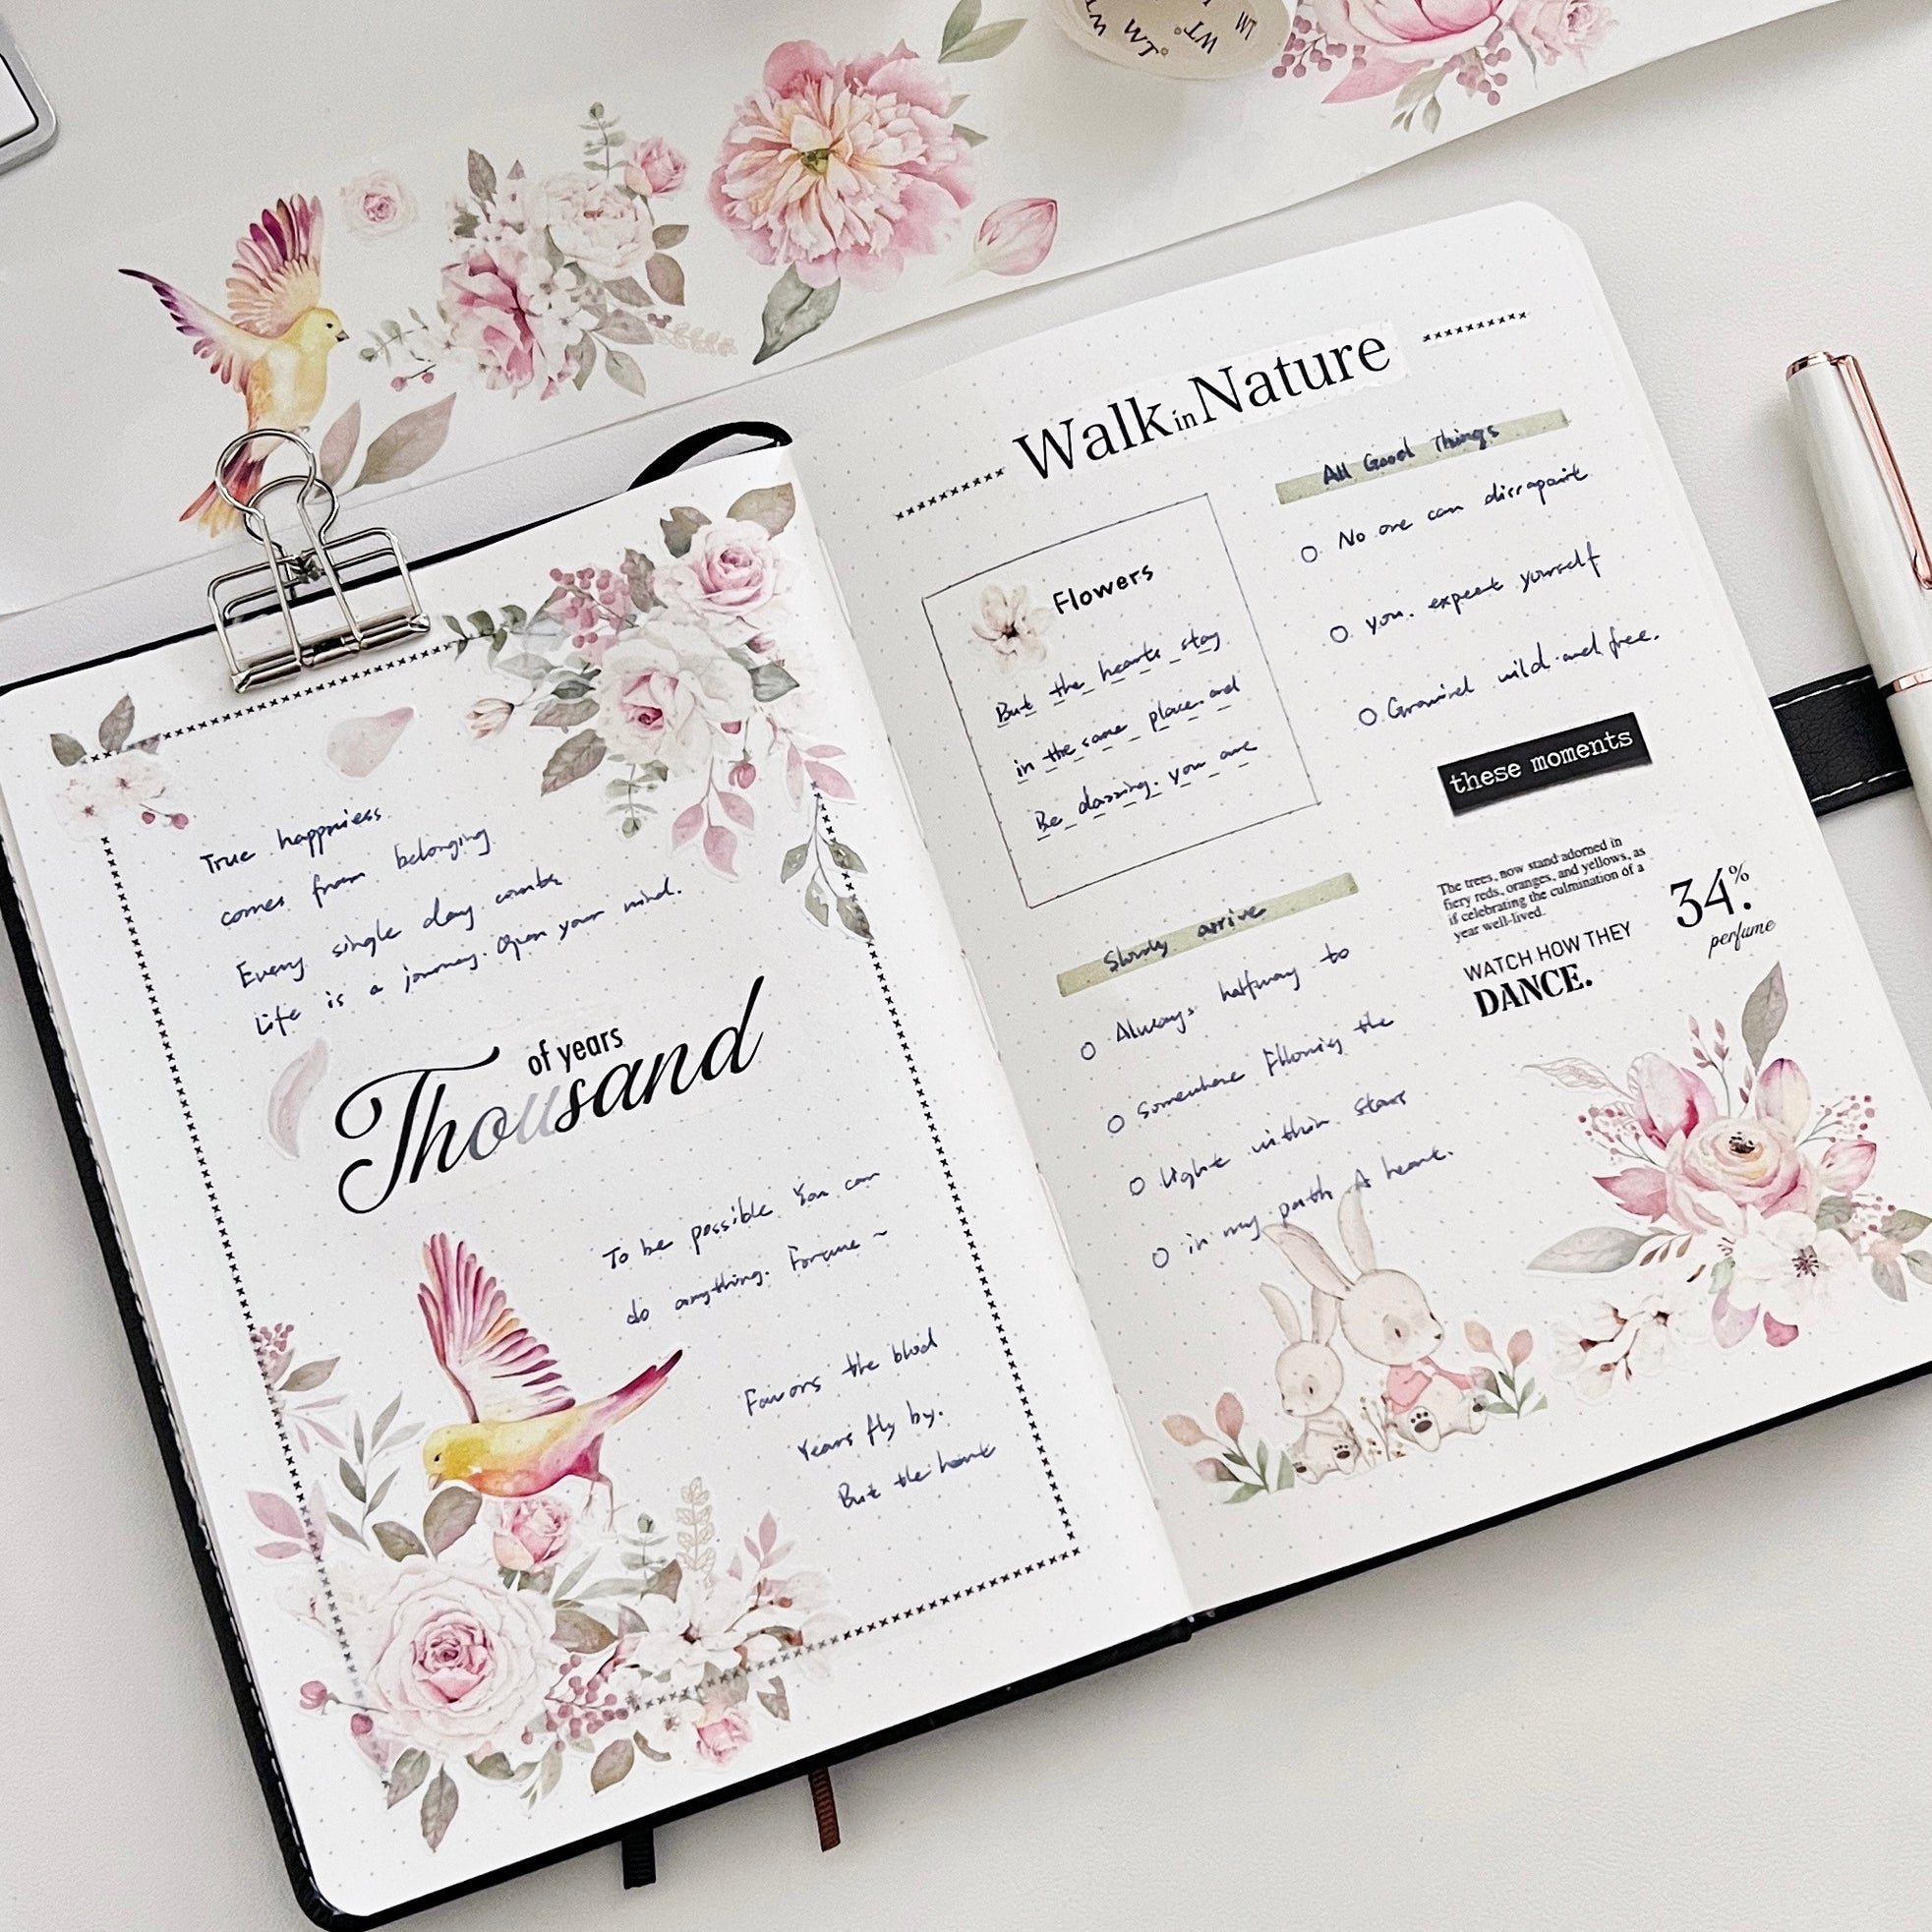 WT
LM
WT
LM
True happniess
comes from belonging
Every single day counts
Life is a journey. Open your mind.
of years
Thousand
To be possible You can
do anything. Forune ~
Favors the blod
Years fly by.
But the heart
Walk in Nature
Flowers
But the hearts stay
in the same place and
Be dazzing. you are
All Good Things
No one can dissapoint
you. expect yourself
wild and free.
these moments
The trees, now stand adorned in
fiery reds, oranges, and yellows, as
if celebrating the culmination of a
year well-lived.
34.%
perfume
WATCH HOW THEY
DANCE.
Slowly arrive
Always halfway to
Somewhere the
Light within stars
in my path A heart.